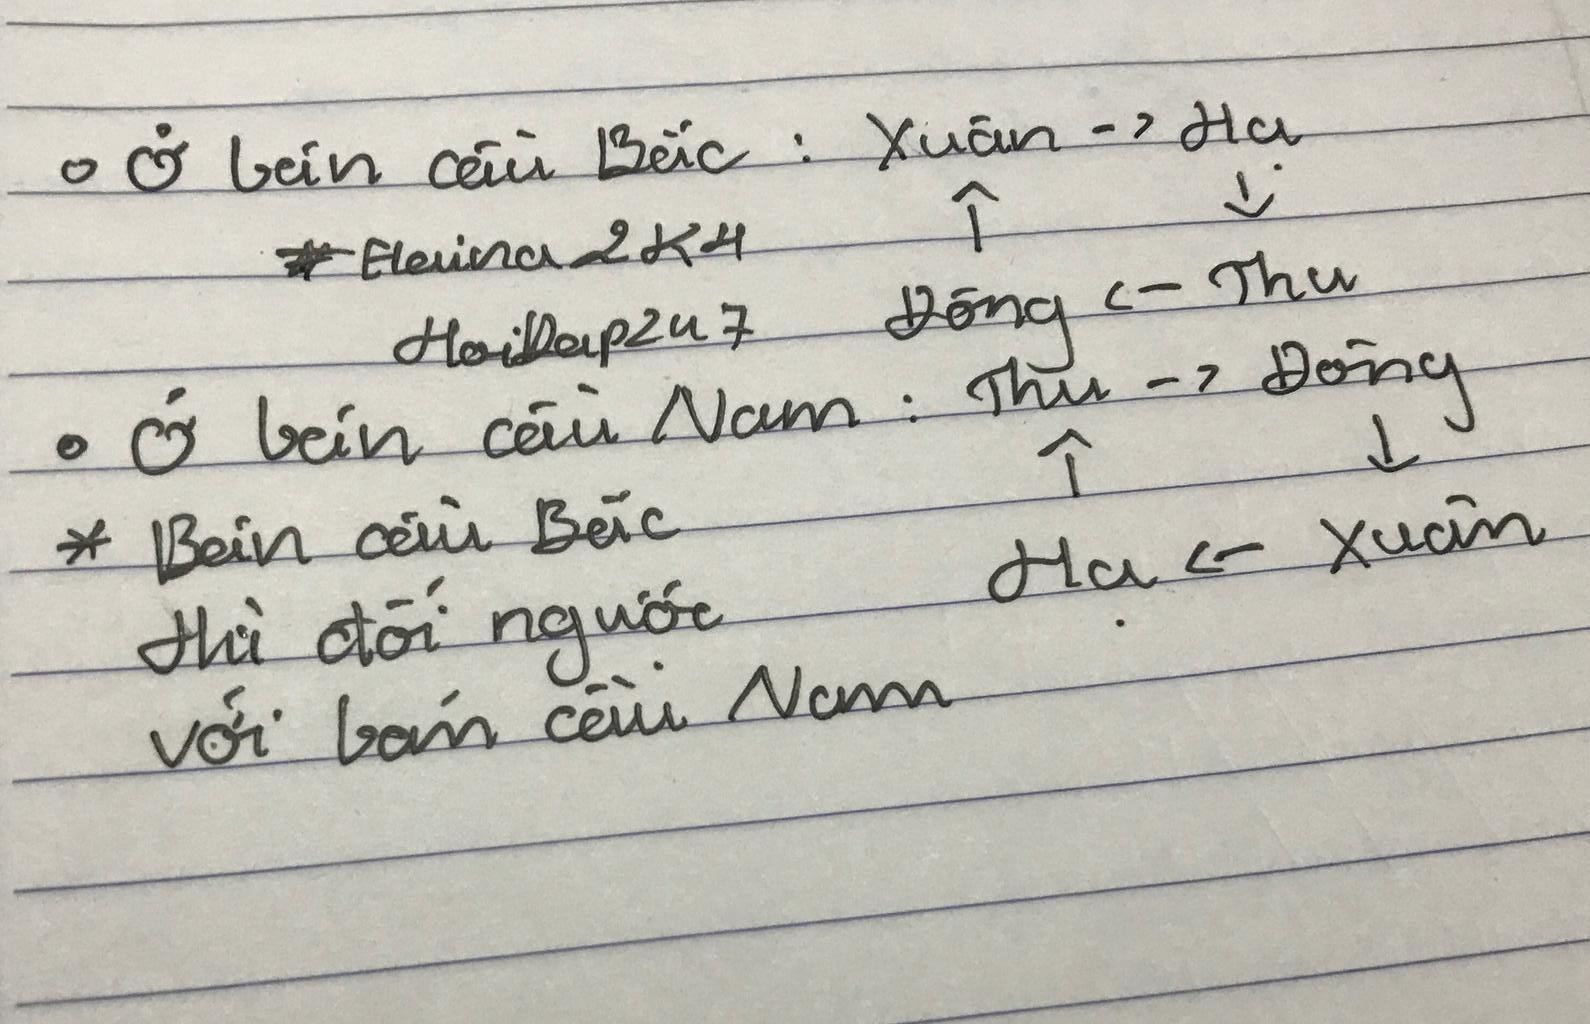 Ở bán cầu Bắc : Xuân -> Hạ
↑ ↓
* Eleina2K4
Đông <- Thu
HoiDap247
Ở bán cầu Nam : Thu -> Đông
↑ ↓
* Bán cầu Bắc
Hạ <- Xuân
thì đối ngược
với bán cầu Nam